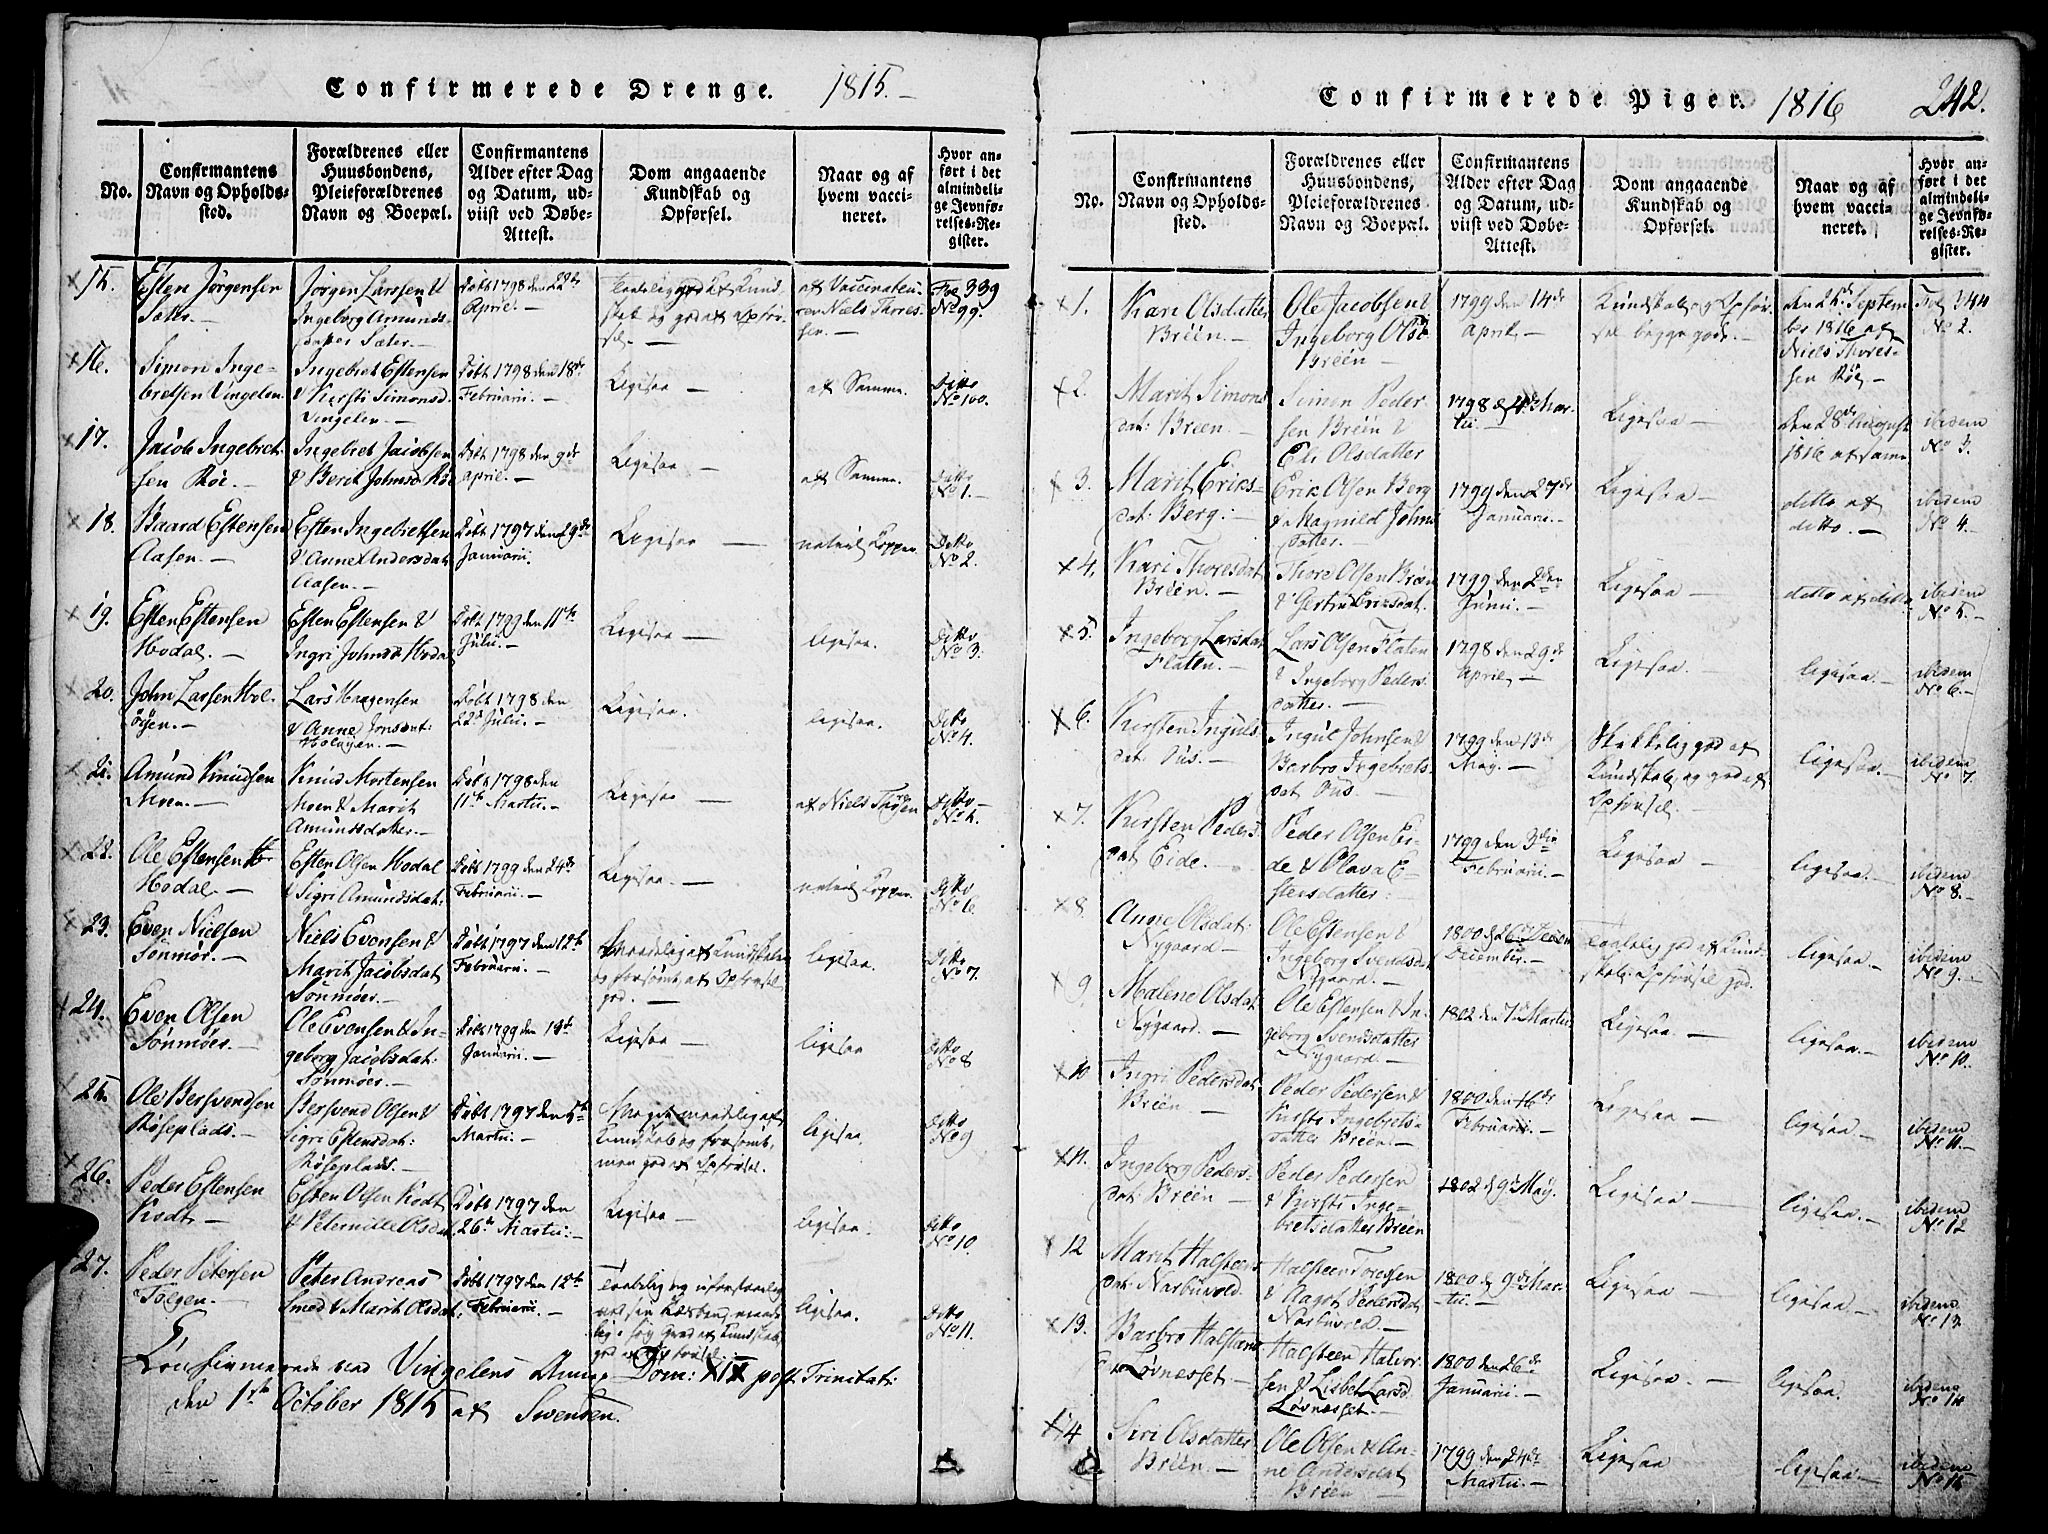 Confirmerede Drenge. 1815.-
No.
Confirmantens Navn og Opholdssted.
Forældrenes eller Huusbondens, Pleieforældrenes Navn og Boepæl.
Confirmantens Alder efter Dag og Datum, udviist ved Døbe-Attest.
Dom angaaende Kundskab og Opførsel.
Naar og af hvem vaccineret.
Hvor anført i det almindelige Jevnførelses-Register.
15. Esten Jørgensen
Jørgen Larssen &
Ingeborg Amunds-
Døbt 1798 den 22de
April. -
Fol 339
No 99.
16. Simon Inge-
bretsen Vingelen.
Ingebret Estensen
& Kirsti Simonsd.
Vingelen. -
Døbt 1798 den 18de
Februarii. -
Ligesaa -
af Samme.
Ditto
No 100.
17. Jacob Ingebret-
sen Røe. -
Ingebret Jacobsen
& Berit Johnsd Røe
Døbt 1798 den 9de
April. -
Ligesaa -
af Samme.
Ditto
No 1. -
18. Baard Estensen
Aasen. -
Esten Ingebretsen
& Anne Andersdat.
Aasen. -
Døbt 1797 den 29de
Januarii.
Ligesaa -
naturl. Kopper.
Ditto
No 2.
19. Esten Estensen
Hodal. -
Esten Estensen &
Ingri Johnsd Hodal
Døbt 1799 den 11te
Julii. -
Ligesaa -
ligesaa.
Ditto
No 3.
20. John Larsen Hol-
øien. -
Lars Haagensen
& Anne Jonsdat:
Holøien. -
Døbt 1798 den
22d Julii. -
Ligesaa.
ligesaa.
Ditto
No 4.
21. Amund Knudsen
Moen. -
Knud Mortensen
Moen & Marit
Amundsdatter. -
Døbt 1798 den
11te Martii. -
Ligesaa -
af Niels Thoresen
Ditto -
No 5.
22. Ole Estensen
Hodal. -
Esten Olsen Hodal
& Sigri Amundsdat:
Døbt 1799 den 24de
Februarii. -
Ligesaa. -
naturl. Kopper.
Ditto
No 6.
23. Even Nielsen
Sønmør. -
Niels Evensen &
Marit Jacobsdat.
Sønmøer. -
Døbt 1797 den 12te
Februarii. -
god. -
ligesaa.
Ditto
No 7.
24. Even Olsen
Sønmøer. -
Ole Evensen & In-
geborg Jacobsdat:
Sønmøer. -
Døbt 1799 den 13de
Januarii. -
Ligesaa -
ligesaa
Ditto
No 8
25. Ole Bersvendsen
Røseplads. -
Bersvend Olsen &
Sigri Estensdat:
Røseplads. -
Døbt 1797 den 5te
Martii. -
Meget maadelig af
Kundskab og forsømt,
men god af Opførsel.
ligesaa.
Ditto
No 9
26. Peder Estensen
Kodt -
Esten Olsen Kodt
& Peternille Olsdat.
Døbt 1797 den
26de Martii. -
Ligesaa -
ligesaa.
Ditto
No 10.
27. Peder Petersen
Tolgen. -
Peter Andreas
Smed & Marit Olsdat:
Døbt 1797 den 12te
Februarii. -
ligesaa.
Ditto
No 11.
Confirmerede ved Vingelens Annex Dom: XIX post Trinitat:
den 1ste October 1815 af Swensen.
Confirmerede Piger. 1816 242.
No.
Confirmantens Navn og Opholdssted.
Forældrenes eller Huusbondens, Pleieforældrenes Navn og Boepæl.
Confirmantens Alder efter Dag og Datum, udviist ved Døbe-Attest.
Dom angaaende Kundskab og Opførsel.
Naar og af hvem vaccineret.
Hvor anført i det almindelige Jevnførelses-Register.
1. Kari Olsdatter
Bréen. -
Ole Jacobsen &
Ingeborg Olsd
Bréen -
1799 den 14de
April -
Kundskab og Opfør-
sel begge gode. -
Septem
ber 1816 af
Niels Thores-
sen Røe -
Fol 344
No 2.
2. Marit Simons
dat: Bréen. -
Simen Peder-
sen Bréen &
Eli Olsdatter
1798 d 4de Mar-
tii. -
Ligesaa -
Den 28de August
1816 af samme
ibidem
No 3.
3. Marit Eriks-
dat: Berg. -
Erik Olsen Berg
& Magnild Johns
datter. -
1799 den 27de
Januarii. -
Ligesaa -
ditto af
ditto. -
ibidem
No 4.
4. Kari Thoresdat.
Bréen. -
Thore Olsen Bréen
& Gertru Eriksdat.
1799 den 2den
Junii. -
Ligesaa -
ditto af ditto
ibidem
No 5. -
5. Ingeborg Larsdat.
Flaten. -
Lars Olsen Flaten
& Ingeborg Peders-
datter. -
1798 den 29de
April -
Ligesaa. -
ligesaa. -
ibidem
No 6. -
6. Kirsten Inguls
dat:Uus. -
Ingul Johnsen &
Barbro Ingebrets-
dat Uus. -
1799 den 19de
May. -
Skikkelig god af
Kundskab og god af
Opførsel. -
ligesaa. -
ibidem
No 7.
7. Kirsten Peders-
dat Eide. -
Peder Olsen Ei-
de & Olava E-
stensdatter. -
1799 den 3die
Februarii. -
Ligesaa -
ligesaa. -
ibidem
No 8. -
8. Anne Olsdat:
Nygaard -
Ole Estensen &
Ingeborg Svendsdat
Nygaard. -
December. -
Taalelig god af Kund-
skab. Opførsel god.
ligesaa. -
ibidem
No 9. -
9. Malene Olsdat:
Nygaard. -
Ole Estensen & In-
geborg Svendsdatter
Nygaard. -
1802 den 7de Martii
Ligesaa -
ligesaa. -
ibidem
No 10.
10. Ingri Pedersdat.
Bréen -
Peder Pedersen &
Kirsti Ingebrets-
datter Bréen. -
1800 den 16de
Februarii. -
Ligesaa -
ligesaa -
ibidem
No 11. -
11. Ingeborg Peders-
dat: Bréen -
Peder Pedersen
& Kirsti Inge-
bretsdatter Bréen
1802 d 9de May.
Ligesaa -
ligesaa. -
ibidem
No 12
12 Marit Halsteens-
dat: Narbuvold.
Halsteen Toressen
& Aagot Pedersdat
Narbuvold. -
1800 d 9de Mar-
tii. -
Ligesaa -
ligesaa -
ibidem
No 13.
13. Barbro Halsteens
Løvnesset. -
Halsteen Halvor-
sen & Lisbet Larsd.
Løvnesset. -
1800 den 26de
Januarii. -
Ligesaa. -
ligesaa. -
ibidem
No 14
14 Siri Olsdatter
Bréen. -
Ole Olsen & An-
ne Andersdat
Bréen -
1799 den 24de
Martii. -
Ligesaa
ligesaa -
ibidem
No 15